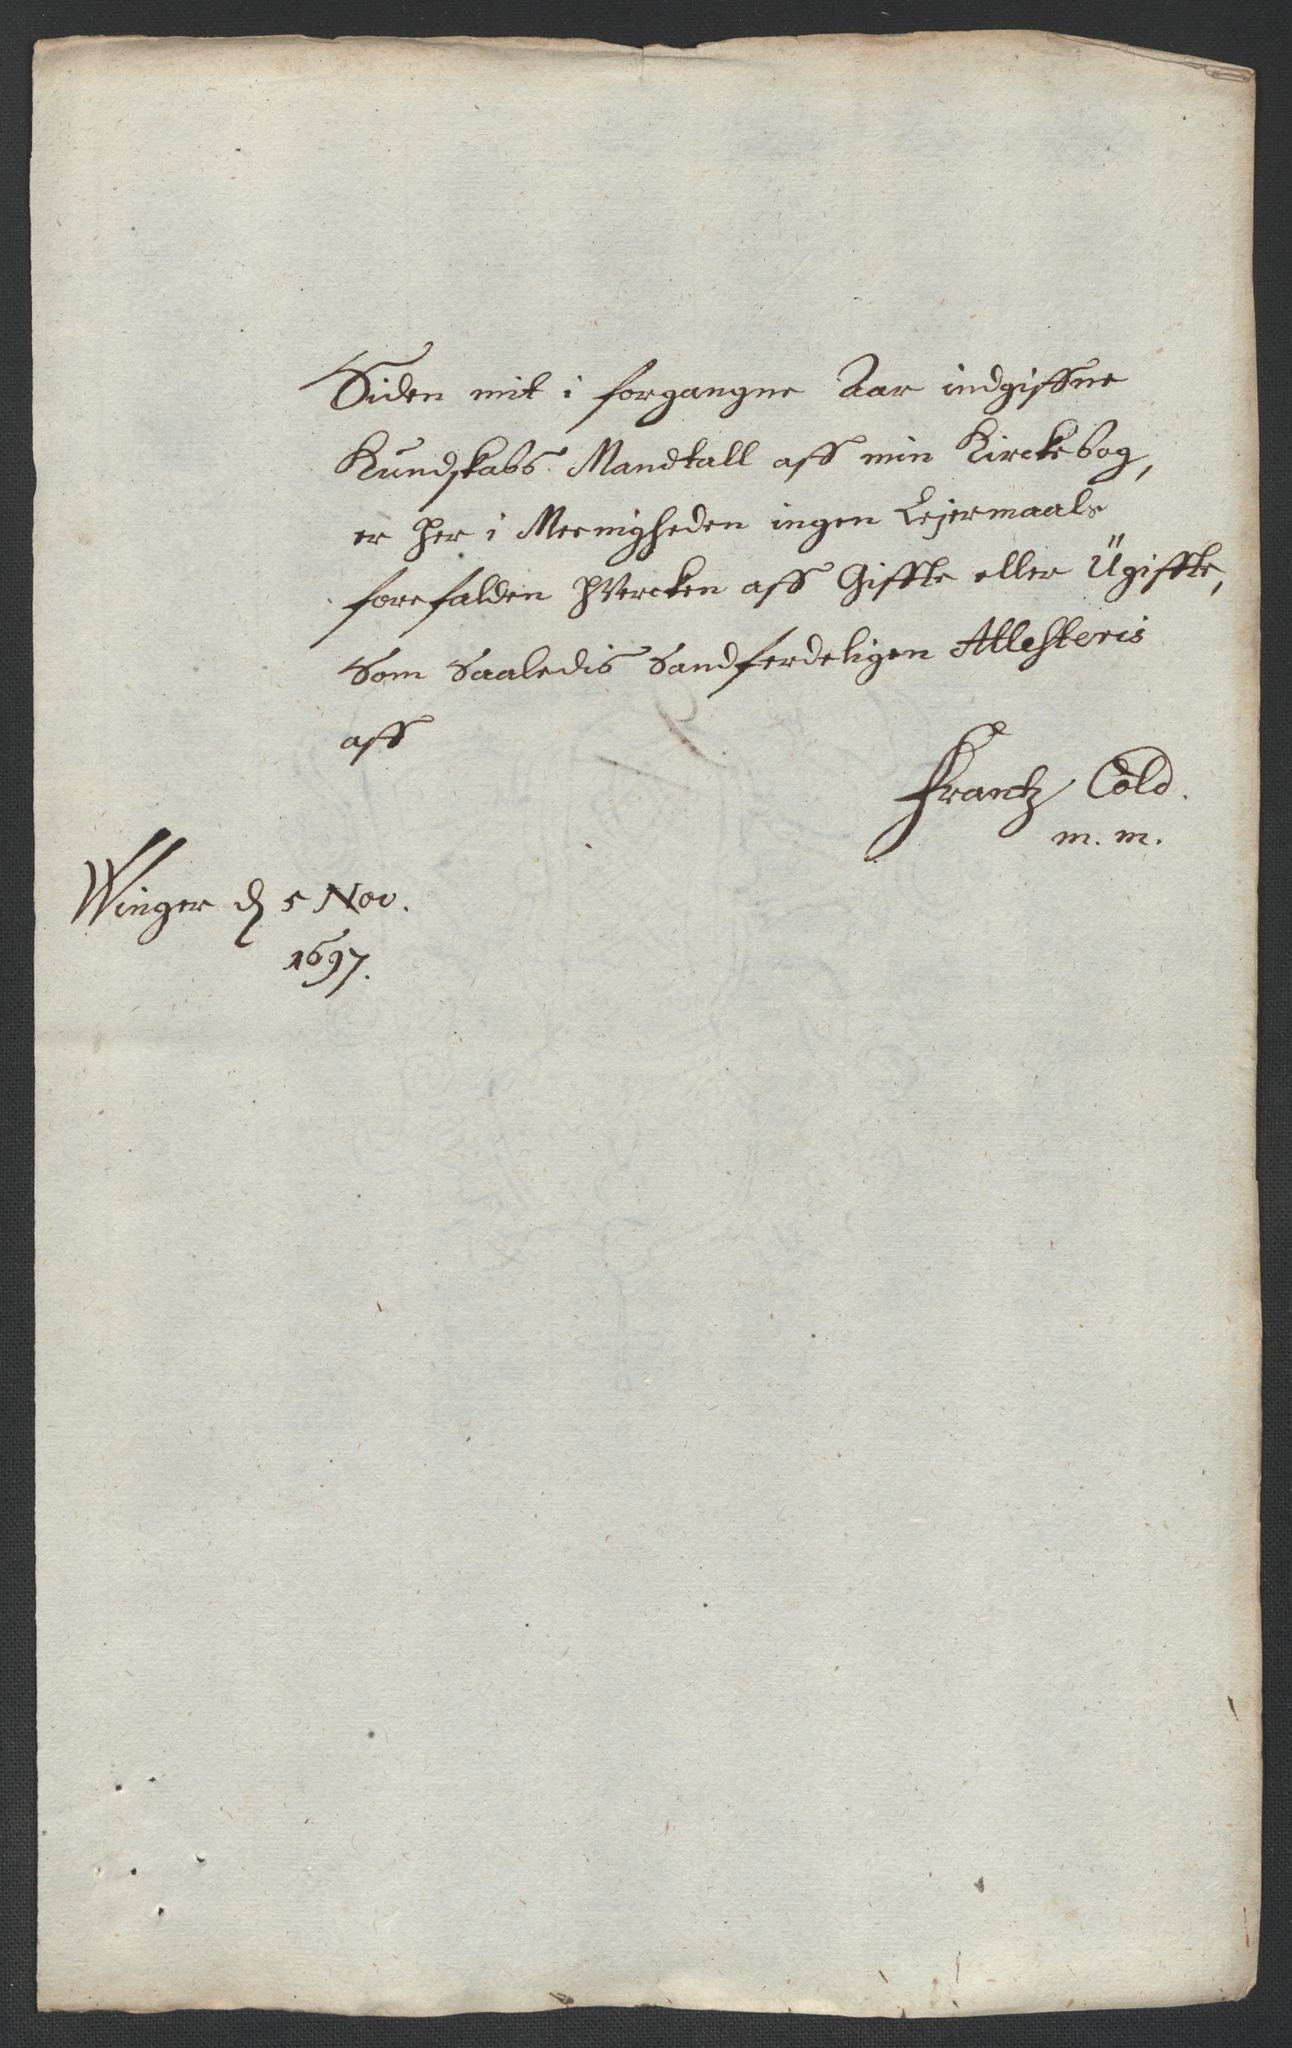 Siden mit i forgangne Aar indgiffne
Kundskabs Mandtall aff min Kirckebog,
er her i Meenigheden ingen Lejermaals
forefalden hvercken aff Giffte eller Ügiffte,
Som Saaledis Sandferdeligen Attesteris
aff
Frantz Cold.
m. m.
Winger d 5 Nov.
1697.